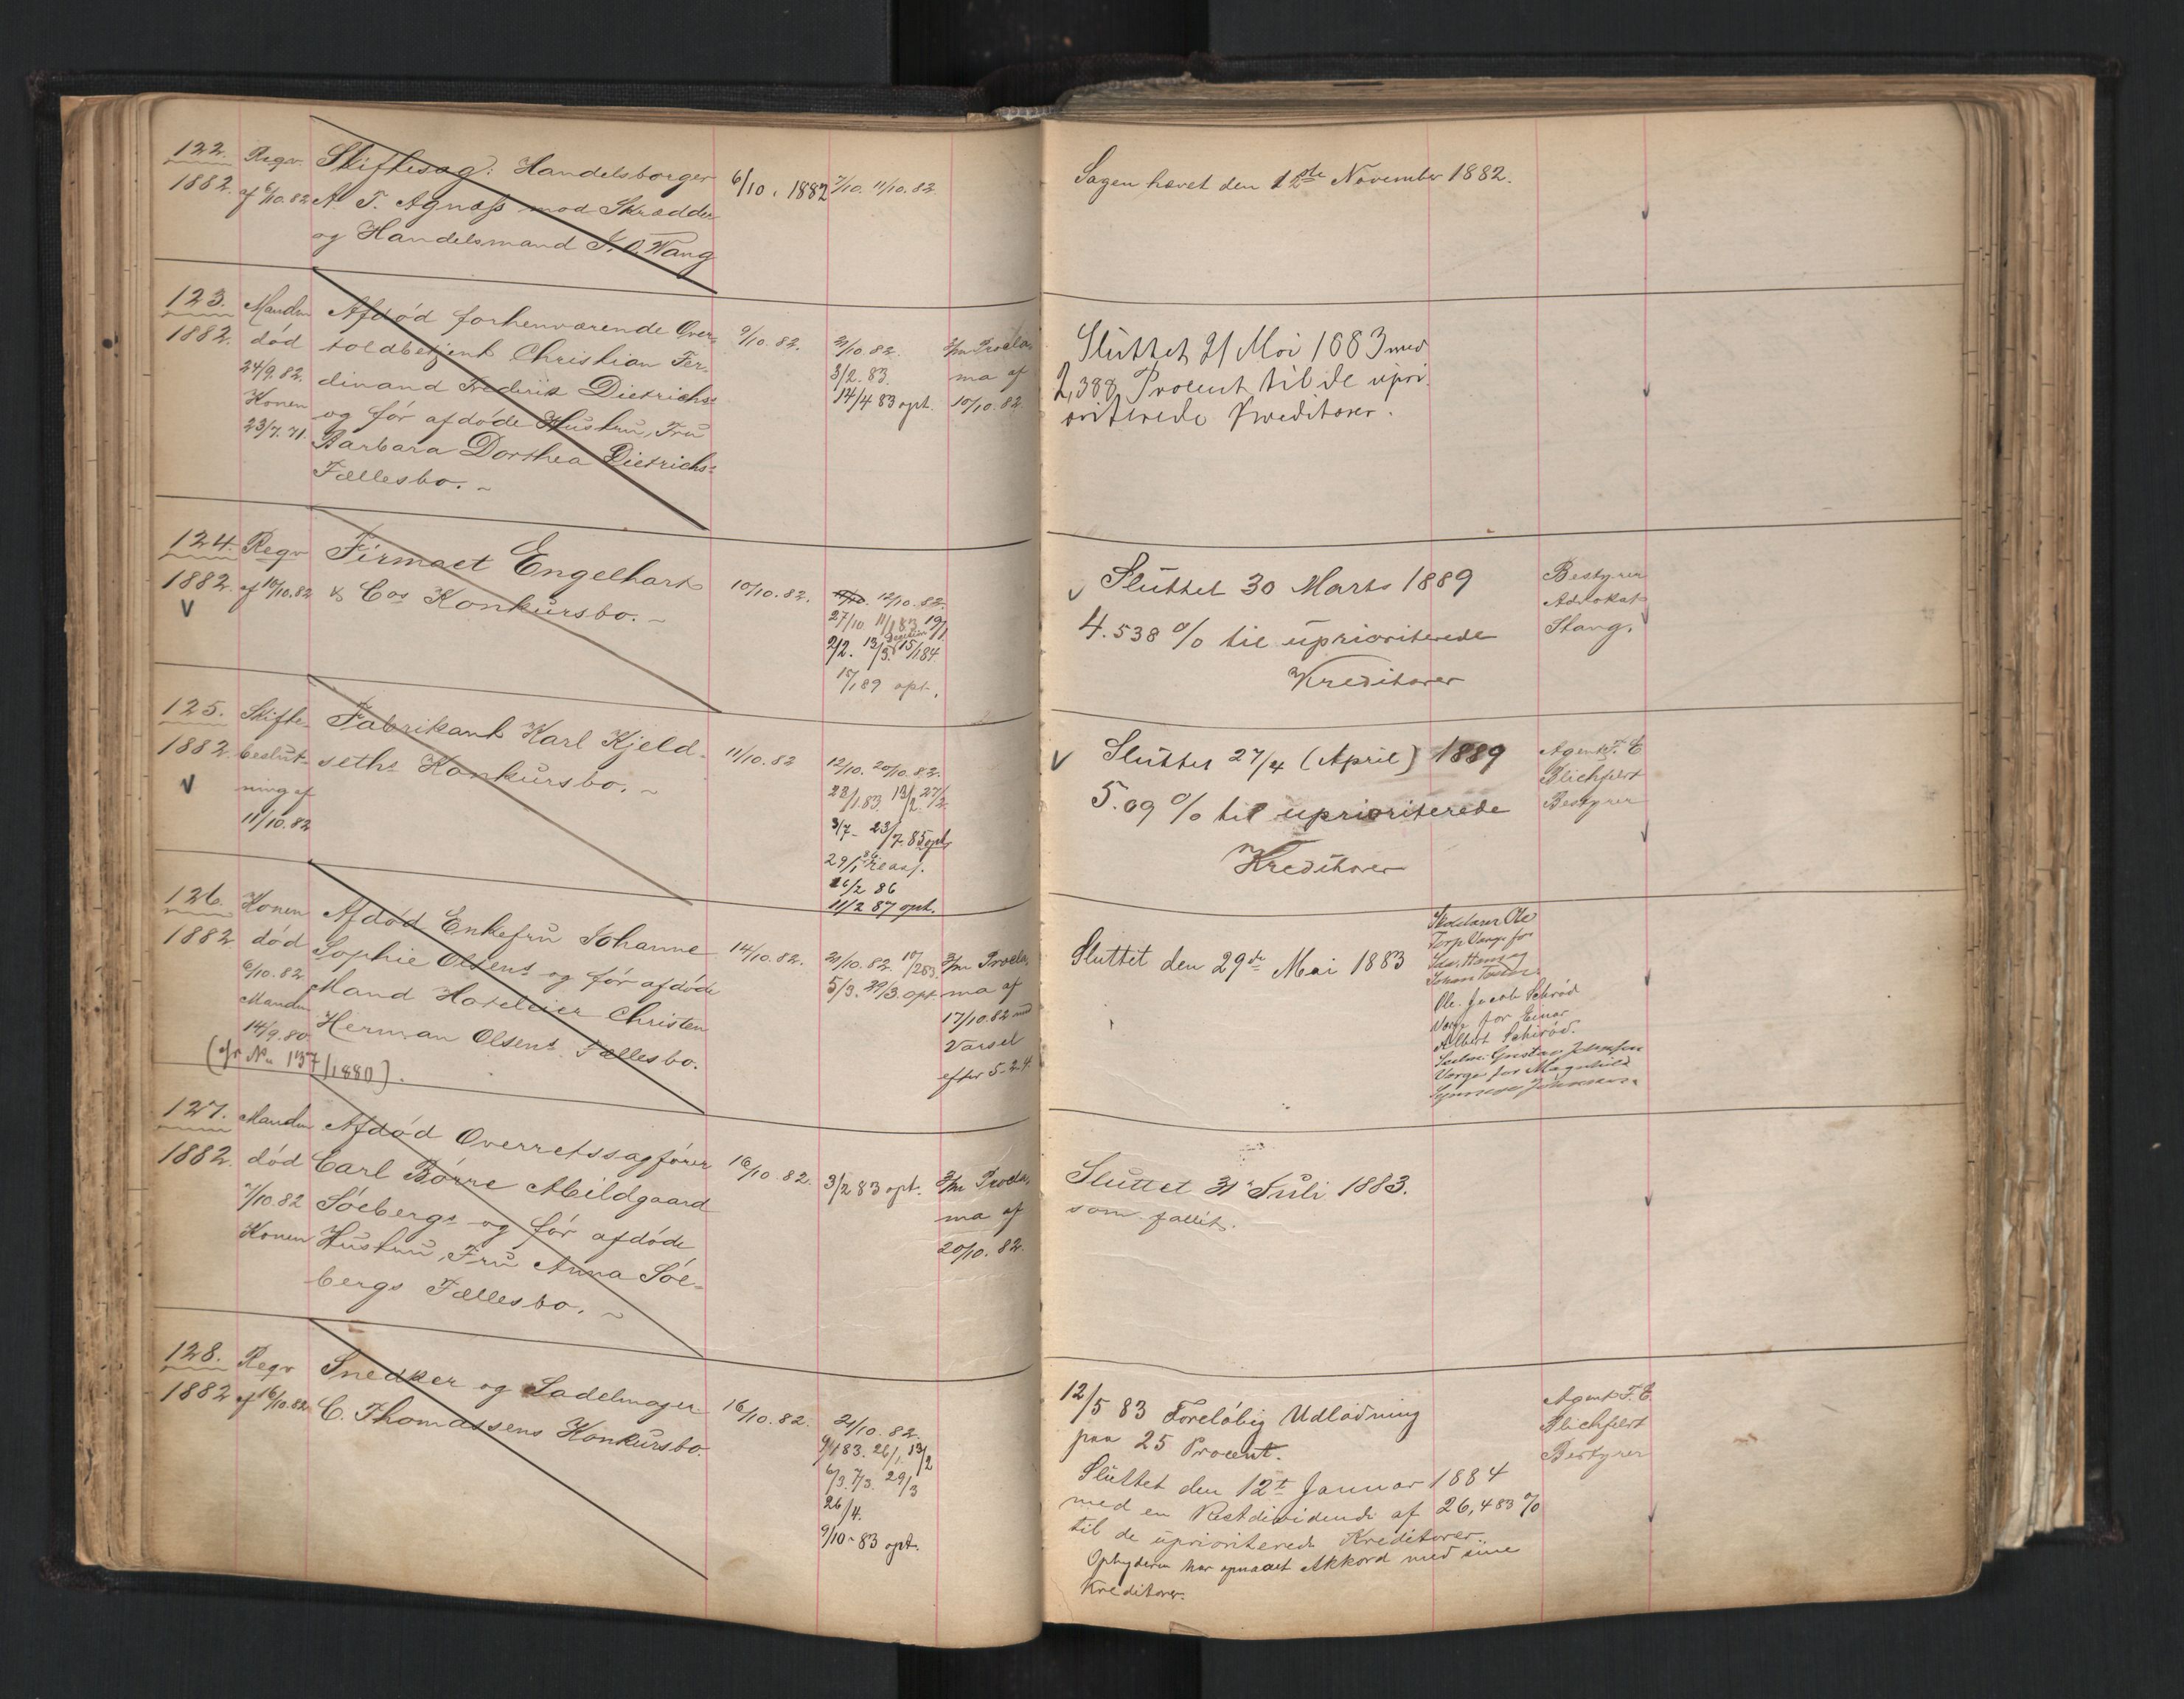 122.
1882.
Reqv.
af 6/10.82
Skiftesag: Handelsborger
A. T. Agnæss mod Skrædder
og Handelsmand J. O. Wang
6/10. 1882
7/10. 11/10.82.
Sagen hævet den 1ste November 1882.
123.
1882.
Manden
død
24/9.82.
Konen
23/7.71.
Afdød forhenværende Over-
toldbetjent Christian Fer-
dinand Frederik Dietrichs-
og før afdøde Hustru, Fru
Barbara Dorthea Dietrichs-
Fællesbo.
9/10.82.
21/10.82.
3/2.83.
14/4 83 opt.
Procla-
ma af
10/10.82.
Sluttet 21 Mai 1883 med
2,388 Procent til de upri-
oriterede Kreditorer.
124.
1882.
V
Reqv
af 10/10.82
Firmaet Engelhart
& Cos Konkursbo.
10/10.82.
12/10.82.
27/10.
15/1 84
15/1 89 opt.
V Sluttet 30 Marts 1889
4.538 % til uprioriterede
Kreditorer
Bestyrer
Advokat
Stang.
125.
1882.
V
Skifte-
beslut-
ning af
11/10.82
Fabrikant Karl Kjeld-
seths Konkursbo.
11/10.82
12/10. 20/10.82.
23/1.83. 13/2. 27/2.
3/7- 23/7.85 opt
29/1 86 reas.
26/2 86
11/2 87 opt.
V Sluttet 27/4 (April) 1889
5.09 % til uprioriterede
Kreditorer
Agent F. E
Blichfeldt
Bestyrer
126.
1882
Konen
død
6/10.82
Manden
14/9.80.
(cfr No 137/1880).
Afdød Enkefru Johanne
Sophie Olsens og før afdøde
Mand Hoteleier Christen
Herman Olsens Fællesbo.
14/10.82.
21/10.82.
5/3. 29/3. opt
Procla-
ma af
17/10.82 med
Varsel
efter 5-2-4
Sluttet den 29de Mai 1883
Ole
Torp Værge for
Ole Jacob Schrød
Værge for Einar
Albert Schirød.
Gustav Johnsen
Værge for Magnhild
127.
1882.
Manden
død
7/10.82
Konen
Afdød Overretssagfører
Carl Børre Abildgaard
Søebergs og før afdøde
Hustru, Fru Anna Søe-
bergs Fællesbo.
16/10.82.
3/2 83 opt.
Procla-
ma af
20/10.82.
Sluttet 31 Juli 1883.
som fallit.
128.
1882
Reqv
af 16/10.82
Snedker og Sadelmager
C. Thomassens Konkursbo.
16/10.82.
21/10.82.
9/1 83. 26/1. 13/2
6/3. 7/3. 29/3
26/4.
9/10-83 opt.
12/5 83 Foreløbig Udlodning
paa 25 Procent.
Sluttet den 12t Januar 1884
med en Restdividende af 26,483 %
til de uprioriterede Kreditorer.
Opbyderen har opnaaet Akkord med sine
Kreditorer.
Agent F. E.
Blichfeldt
Bestyrer